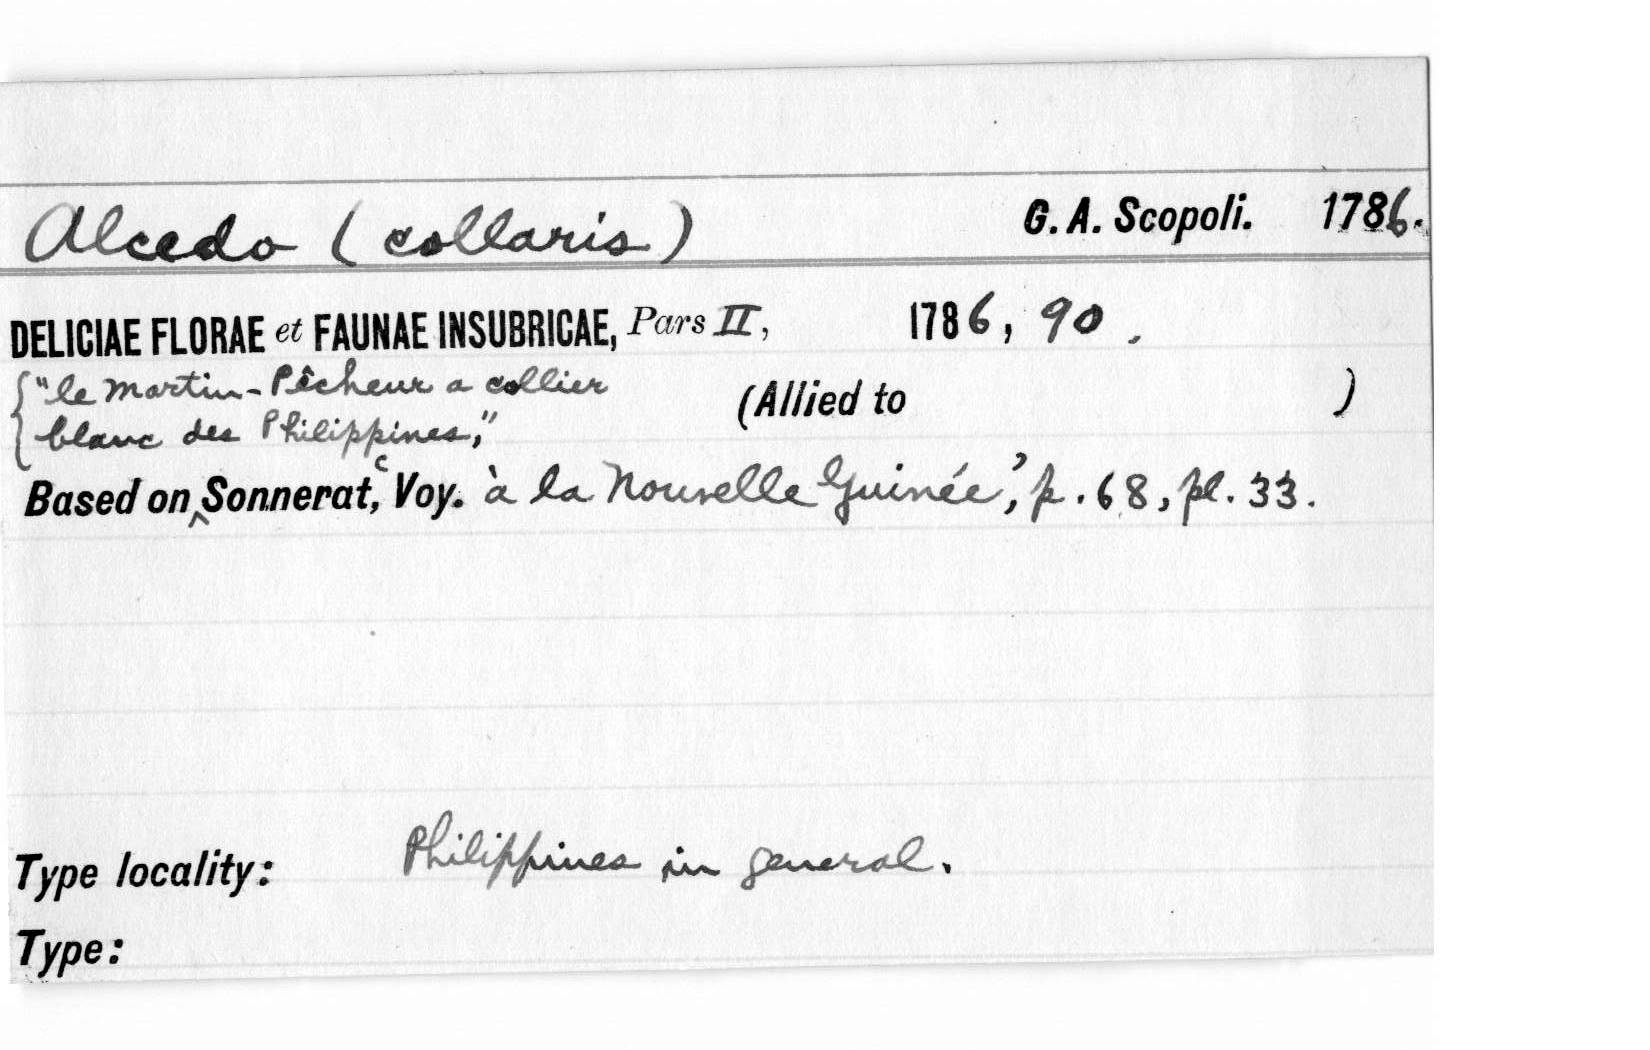 Alcedo (collaris) G. A. Scopoli. 1786.
DELICIAE FLORAE et FAUNAE INSUBRICAE, Pars II, 1786, 90.
{"le Martin-Pêcheur a collier
blanc des Philippines,"
(Allied to )
Based on ‸ Sonnerat, ‘Voy. à la Nouvelle Guinée’, p. 68, pl. 33.
Type locality: Philippines in general.
Type: